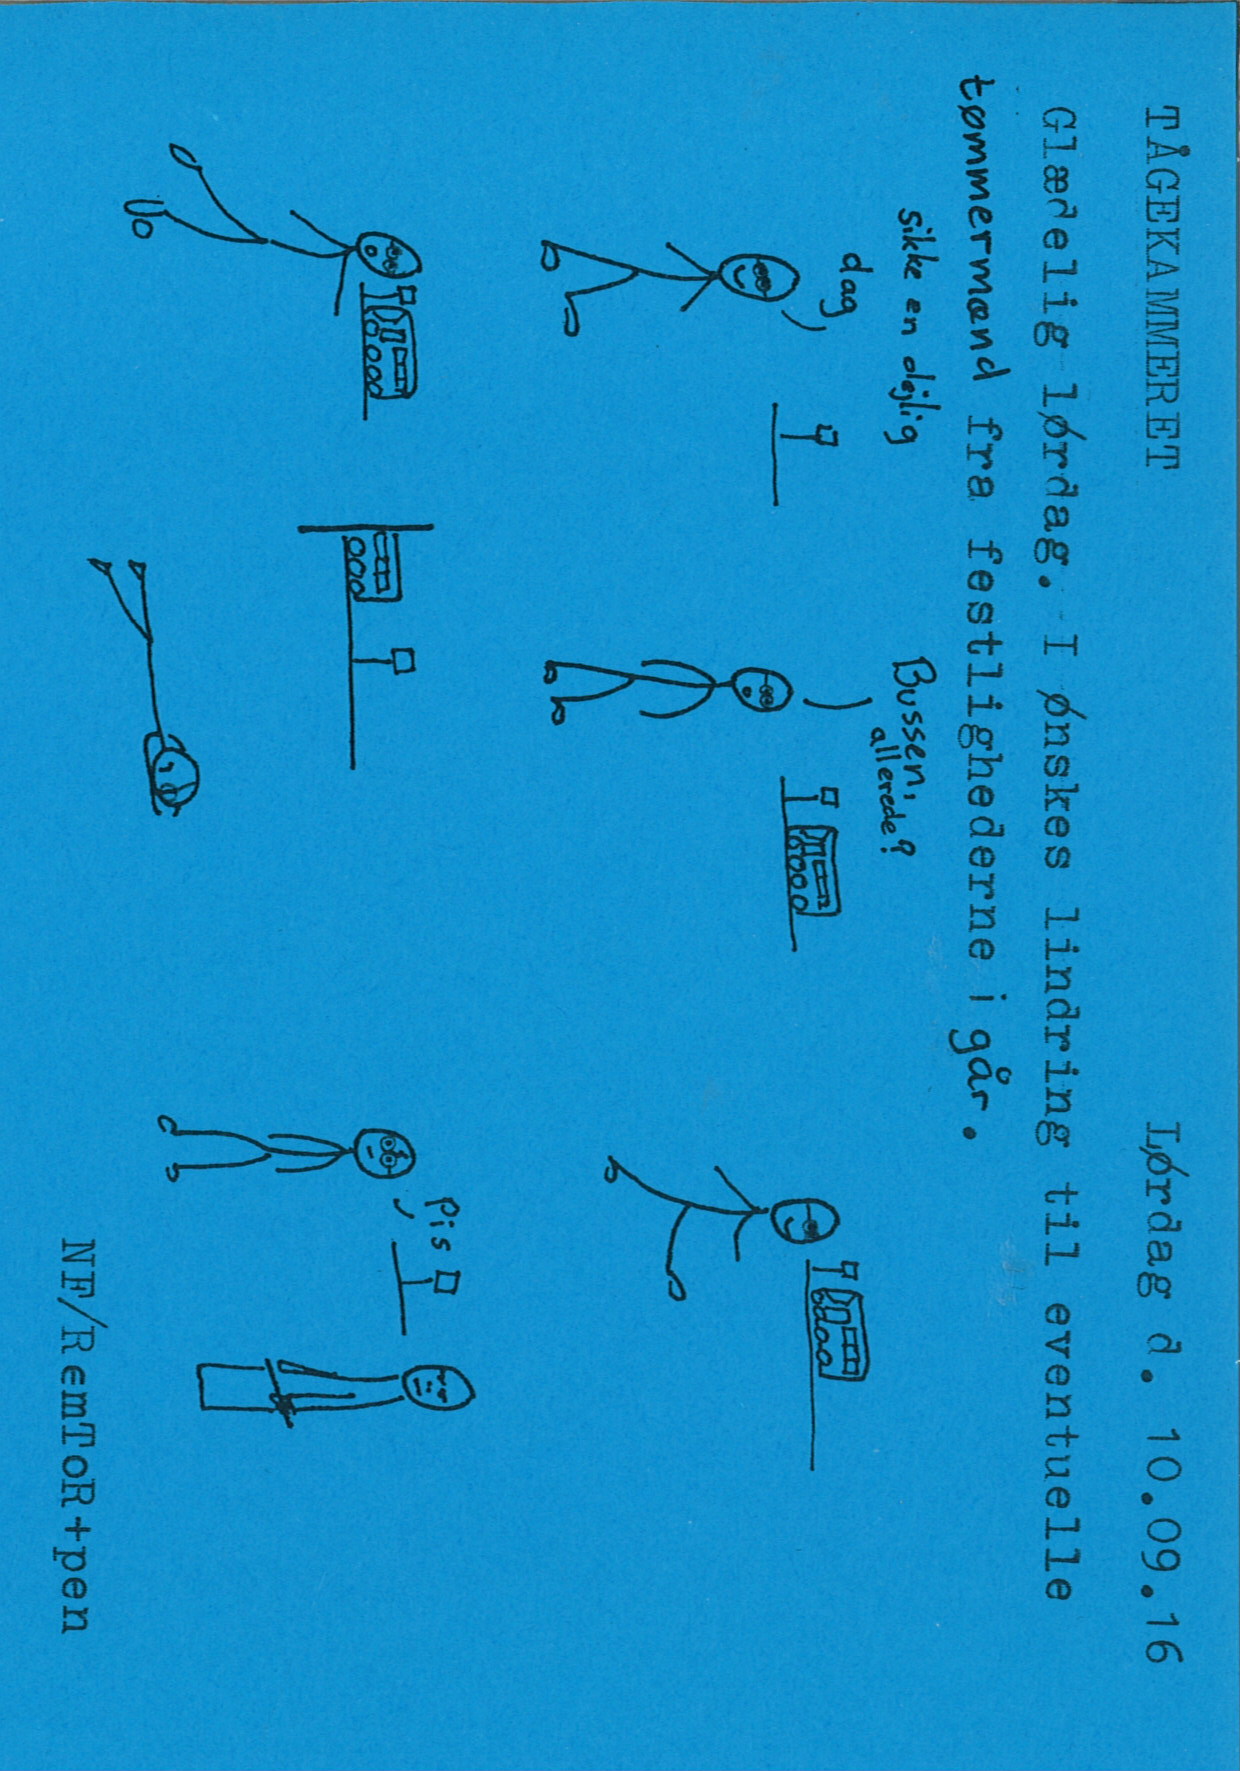 TÅGEKAMMERET
Lørdag d. 10.09.16
Glædelig lørdag. I ønskes lindring til eventuelle
tømmermænd fra festlighederne i går.
sikke en dejlig
dag
Bussen,
allerede?
Pis
NF/RemToR+pen